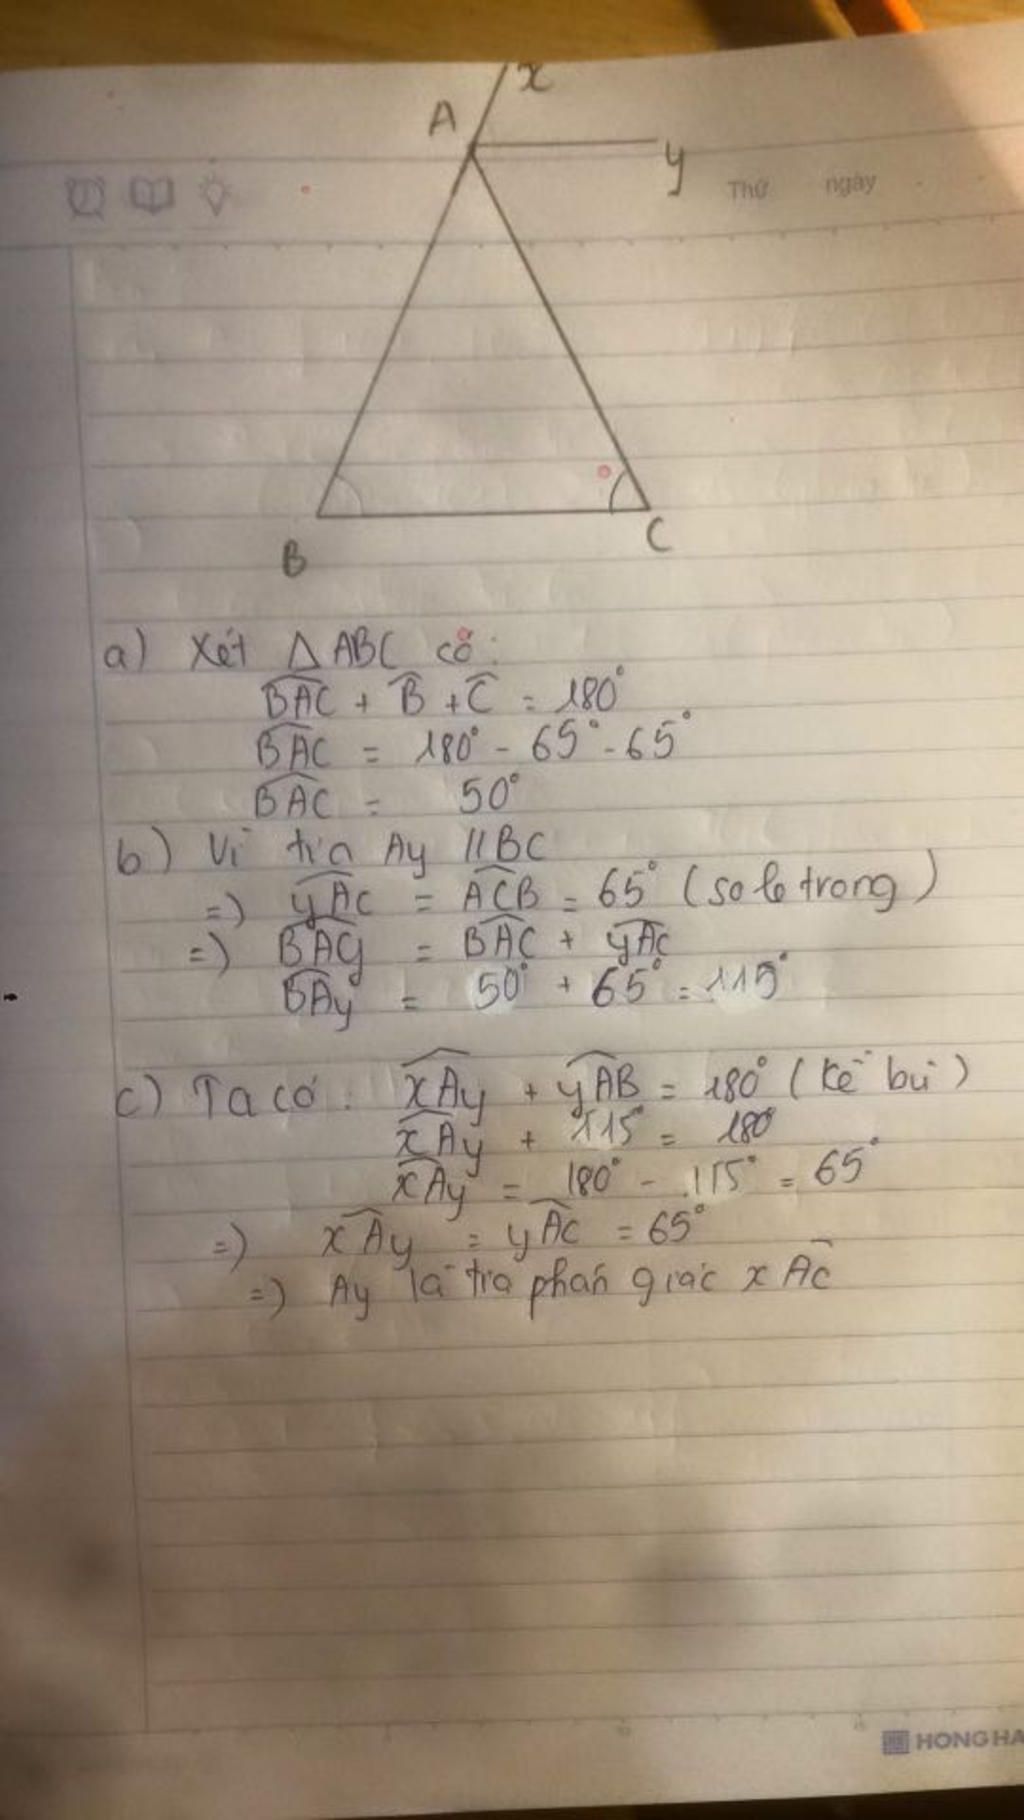 x
A
y
Thứ ngày
B
C
a) Xét △ABC có:
BAC + B + C = 180°
BAC = 180° - 65° - 65°
BAC = 50°
b) Vì tia Ay // BC
=) yAC = ACB = 65° (so le trong)
=) BAy = BAC + yAC
BAy = 50° + 65° = 115°
c) Ta có: xAy + yAB = 180° (kề bù)
xAy + 115° = 180°
xAy = 180° - 115° = 65°
=) xAy = yAC = 65°
=) Ay là tia phân giác xAC
HONG HA